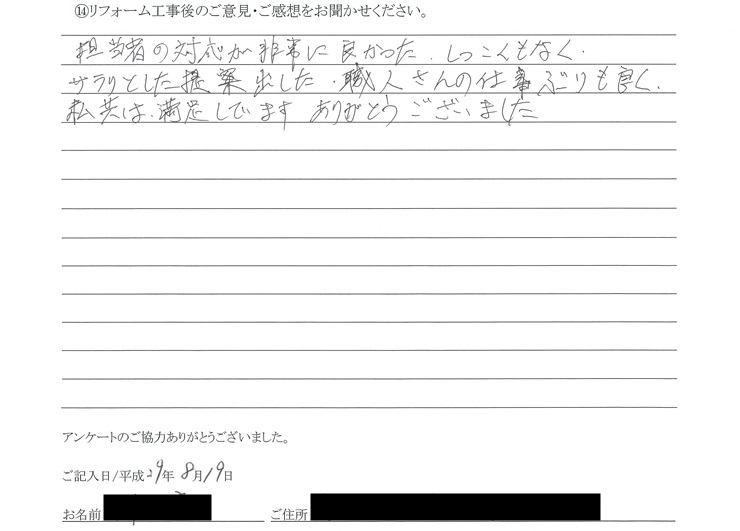 ⑭リフォーム工事後のご意見・ご感想をお聞かせください。
担当者の対応が非常に良かった．しつこくもなく．
サラリとした提案出した．職人さんの仕事ぶりも良く．
私共は．満足しています ありがとうございました
アンケートのご協力ありがとうございました。
ご記入日/平成29年 8月19日
お名前 ご住所